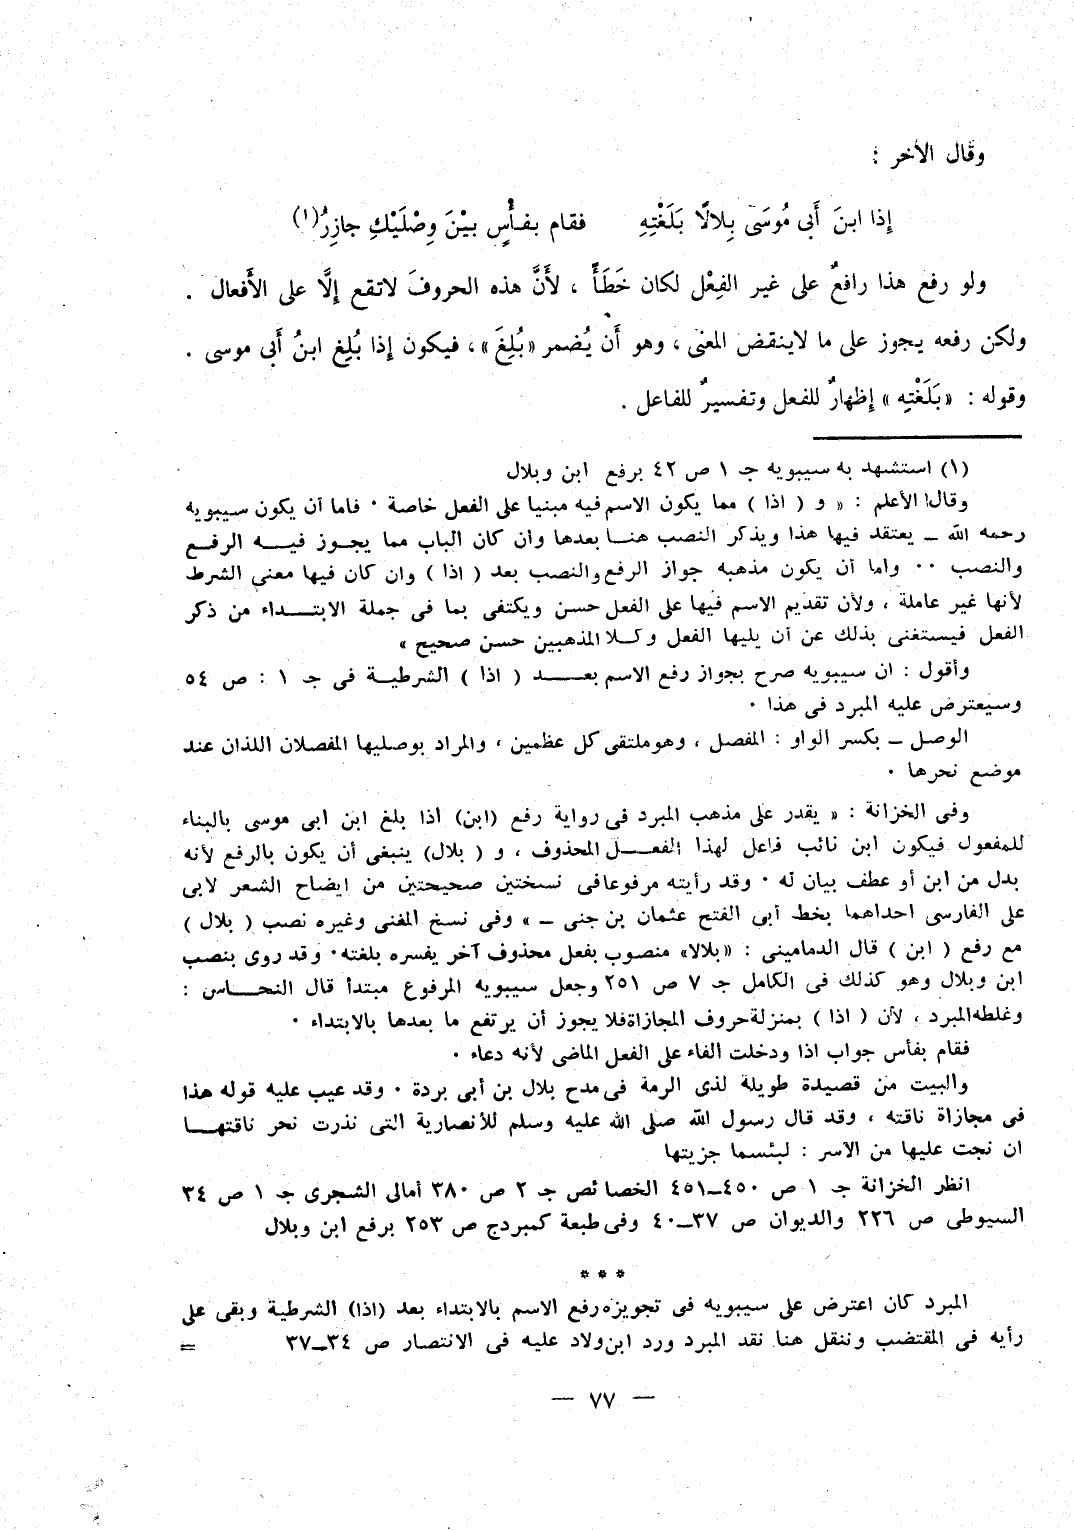 وقال الأخر :
إذا ابنَ أَبى مُوسَى بِلالًا بَلَغْتِهِ فقام بفأْسٍ بيْنَ وِصْلَيْكِ جازِرُ(١)
ولو رفع هذا رافعٌ على غير الفِعْل لكان خَطَأً ، لأَنَّ هذه الحروفَ لاتقع إلَّا على الأَفعال .
ولكن رفعه يجوز على ما لاينقض المعنى ، وهو أَن يُضمر «بُلِغَ» ، فيكون إذا بُلِغ ابنُ أَبى موسى .
وقوله : «بَلَغْتِه» إظهارٌ للفعل وتفسيرٌ للفاعل .
(١) استشهد به سيبويه جـ ١ ص ٤٢ برفع ابن وبلال
وقال الأعلم : « و ( اذا ) مما يكون الاسم فيه مبنيا على الفعل خاصة ٠ فاما أن يكون سيبويه
رحمه الله ـ يعتقد فيها هذا ويذكر النصب هنـا بعدها وان كان الباب مما يجـوز فيـه الرفـع
والنصب ٠٠ واما أن يكون مذهبه جواز الرفع والنصب بعد ( اذا ) وان كان فيها معنى الشرط
لأنها غير عاملة ، ولأن تقديم الاسم فيها على الفعل حسن ويكتفى بما فى جملة الابتـداء من ذكر
الفعل فيستغنى بذلك عن أن يليها الفعل وكـلا المذهبين حسن صحيح »
وأقول : ان سيبويه صرح بجواز رفع الاسم بعـد ( اذا ) الشرطيـة فى جـ ١ : ص ٥٤
وسيعترض عليه المبرد فى هذا ٠
الوصل ـ بكسر الواو : المفصل ، وهو ملتقى كل عظمين ، والمراد بوصليها المفصلان اللذان عند
موضع نحرها ٠
وفى الخزانة : « يقدر على مذهب المبرد فى رواية رفع (ابن) اذا بلغ ابن ابى موسى بالبناء
للمفعول فيكون ابن نائب فاعل لهذا الفعـل المحذوف ، و ( بلال) ينبغى أن يكون بالرفع لأنه
بدل من ابن أو عطف بيان له ٠ وقد رأيته مرفوعا فى نسختين صحيحتين من ايضاح الشعر لابى
على الفارسى احداهما بخط أبى الفتح عثمان بن جنى ـ » وفى نسخ المغنى وغيره نصب ( بلال )
مع رفع ( ابن ) قال الدمامينى : «بلالا» منصوب بفعل محذوف آخر يفسره بلغته٠ وقد روى بنصب
ابن وبلال وهو كذلك فى الكامل جـ ٧ ص ٢٥١ وجعل سيبويه المرفوع مبتدأ قال النحـاس :
وغلطه المبرد ، لأن ( اذا ) بمنزلة حروف المجازاة فلا يجوز أن يرتفع ما بعدها بالابتداء ٠
فقام بفأس جواب اذا ودخلت الفاء على الفعل الماضى لأنه دعاء ٠
والبيت من قصيدة طويلة لذى الرمة فى مدح بلال بن أبى بردة ٠ وقد عيب عليه قوله هذا
فى مجازاة ناقته ، وقد قال رسول الله صلى الله عليه وسلم للأنصارية التى نذرت نحر ناقتهـا
ان نجت عليها من الأسر : لبئسما جزيتها
انظر الخزانة جـ ١ ص ٤٥٠ـ٤٥١ الخصائص جـ ٢ ص ٣٨٠ أمالى الشجرى جـ ١ ص ٣٤
السيوطى ص ٢٢٦ والديوان ص ٣٧ـ٤٠ وفى طبعة كمبردج ص ٢٥٣ برفع ابن وبلال
***
المبرد كان اعترض على سيبويه فى تجويزه رفع الاسم بالابتداء بعد (اذا) الشرطية وبقى على
رأيه فى المقتضب وننقل هنا نقد المبرد ورد ابن ولاد عليه فى الانتصار ص ٣٤ـ٣٧ =
— ٧٧ —